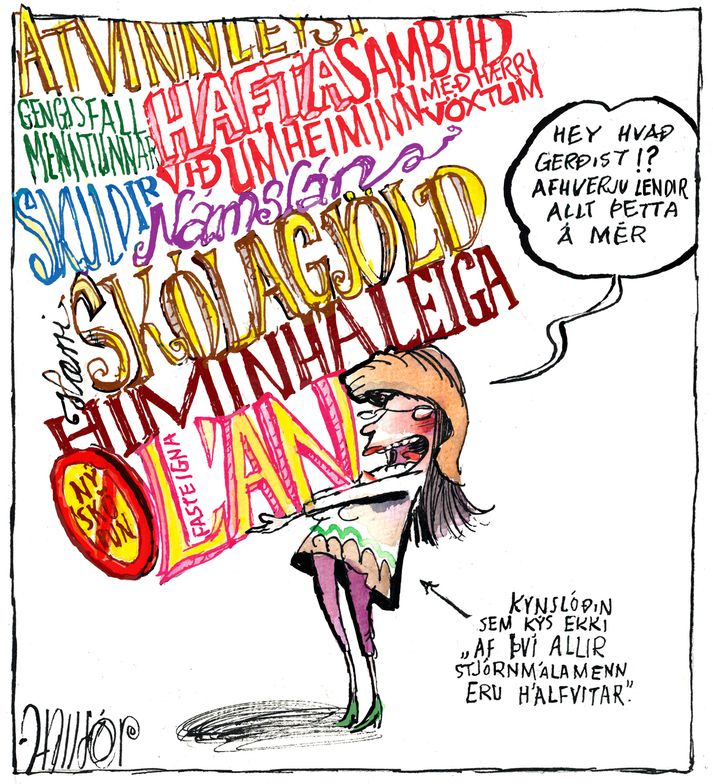 ATVINNLEYSI
GENGISFALL
MENNTUNNAR
HAFTASAMBÚÐ
MEÐ HÆRRI
VÖXTUM
VIÐ UMHEIMINN
SKULDIR
Namslán
Hærri
SKÓLAGJÖLD
HIMINHÁ LEIGA
FASTEIGNA
LÁN
NÝ
SK
UN
HEY HVAÐ
GERÐIST!?
AFHVERJU LENDIR
ALLT ÞETTA
Á MÉR
KYNSLÓÐIN
SEM KÝS EKKI
„AF ÞVÍ ALLIR
STJÓRNMÁLAMENN
ERU HÁLFVITAR".
HALLDÓR